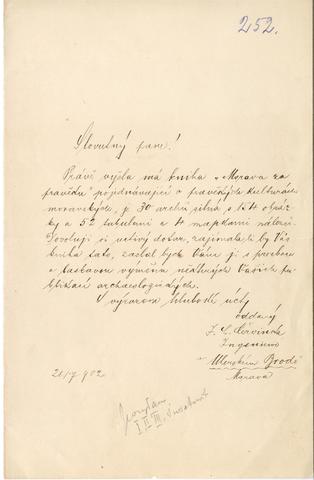 252.
Slovutný pane!
Právě vyšla má kniha „Morava za
pravěku" pojednávající o pravěkých kulturách
moravských, je 30 archů silná s 154 obráz-
ky a 52 tabulemi a 4 mapkami
Dovoluji si uctivý dotaz, zajímala-li by Vás
kniha tato, zaslal bych Vám ji s prosbou
o laskavou výměnu některých Vašich pu-
blikací archaeologických.
S výrazem hluboké úcty
oddaný
I. L. Červinka
Ingenieur
Uherském Brodě
Morava
21/7 902
I II III.